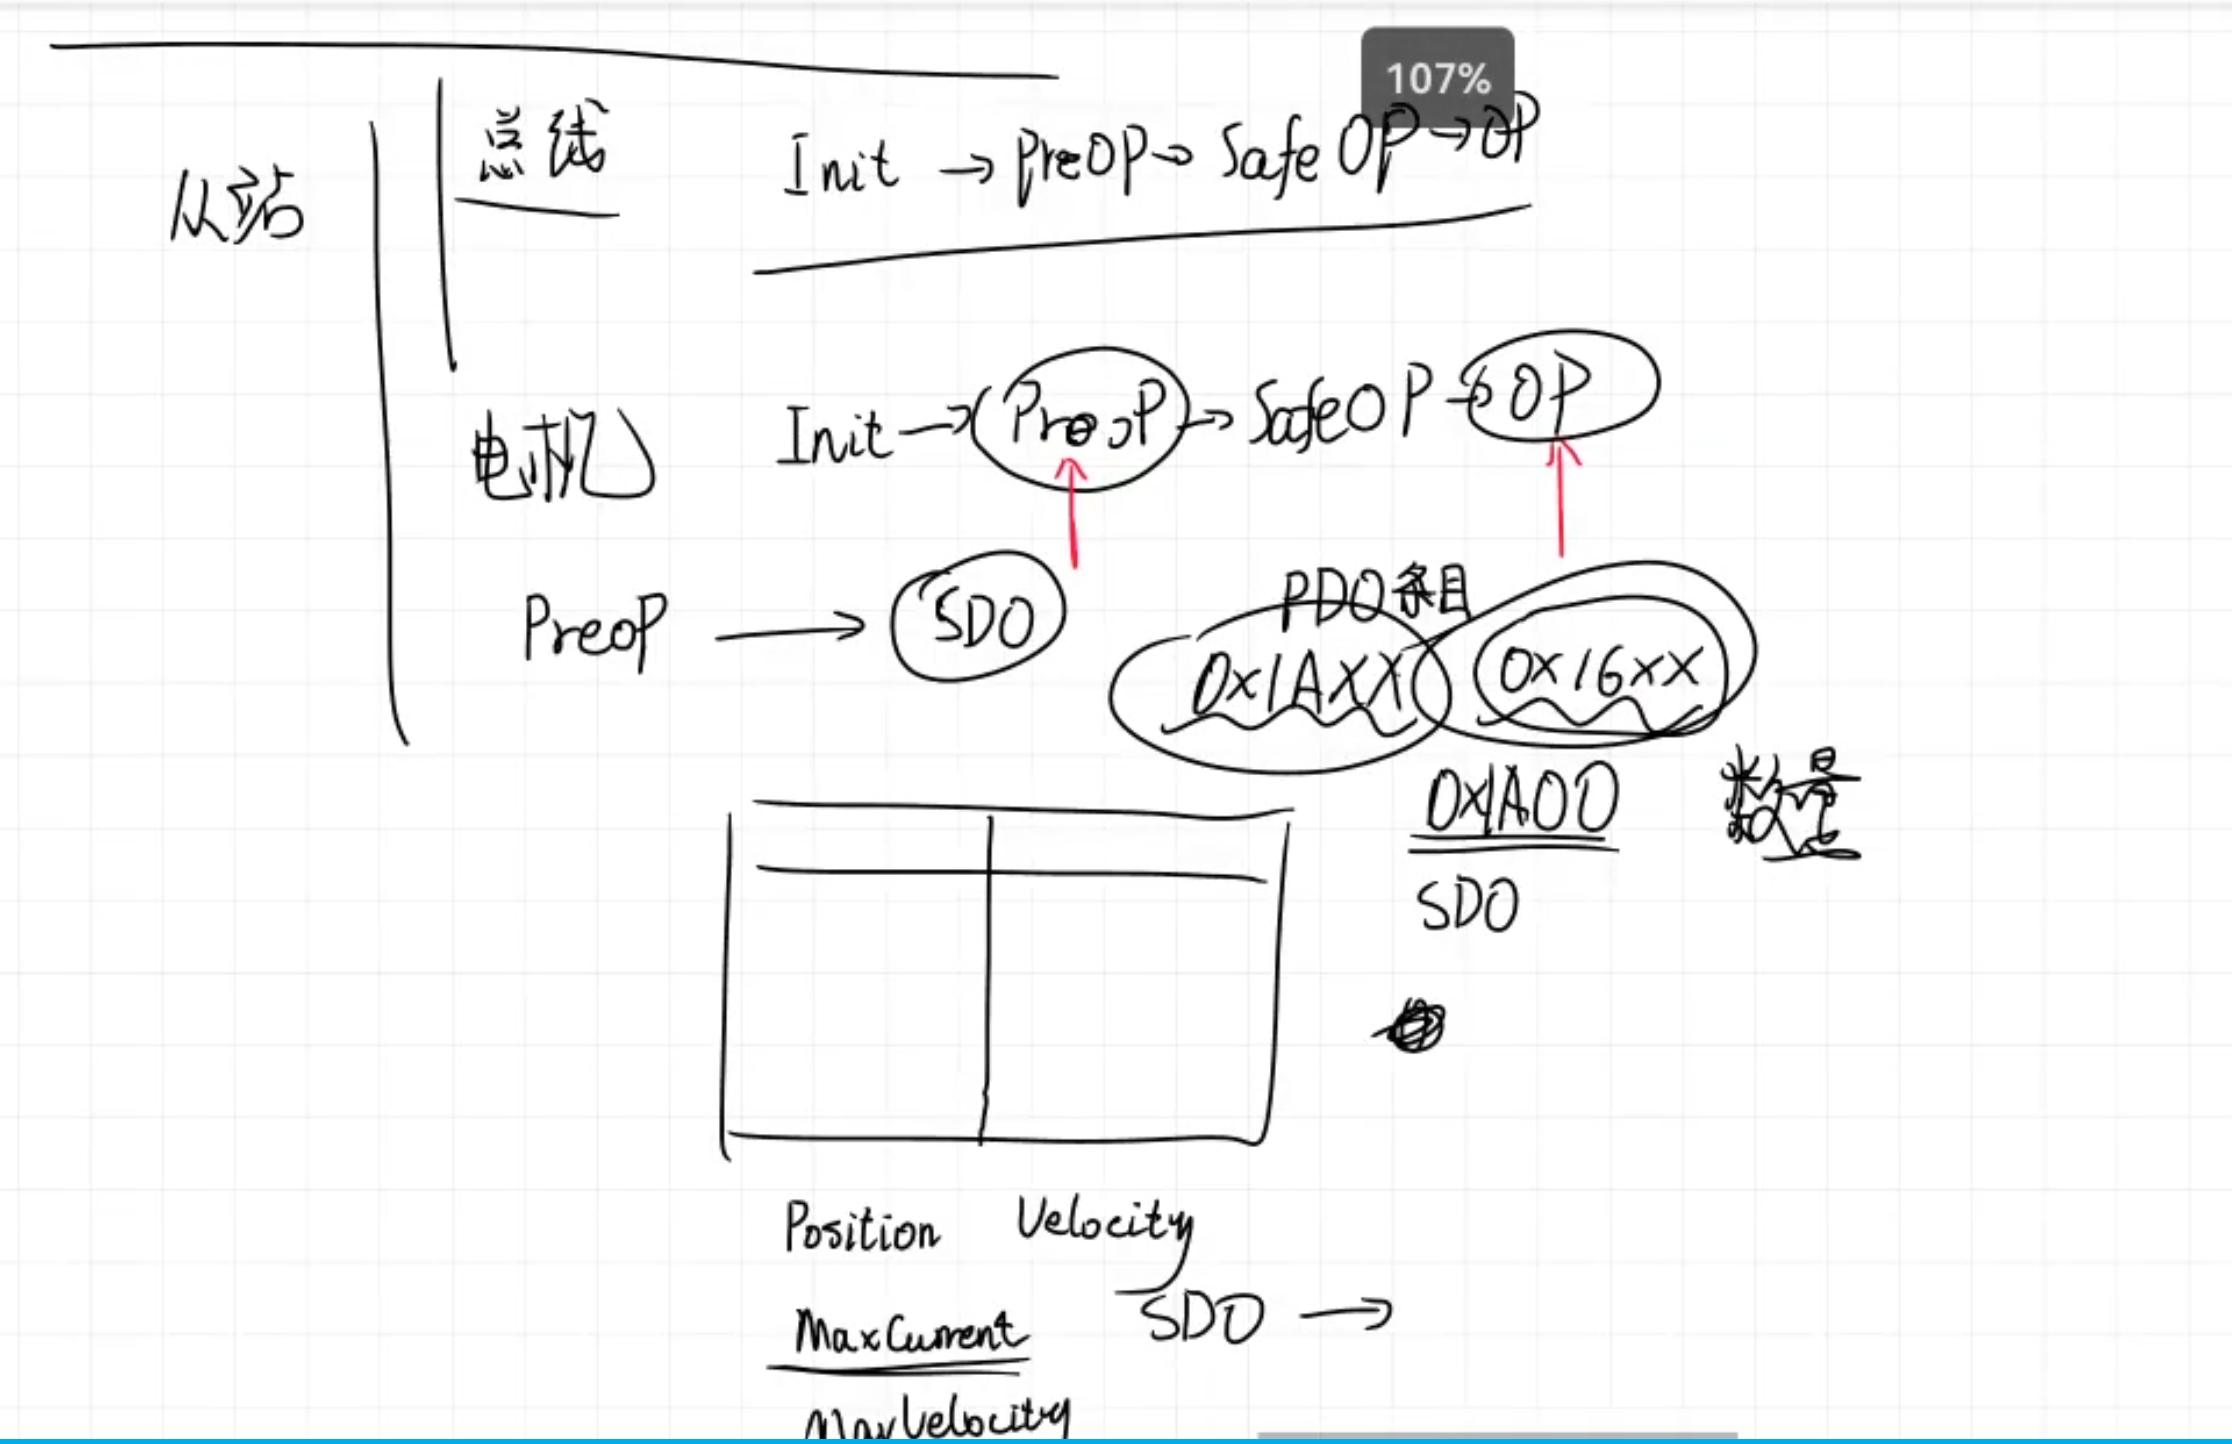 107%
总线
Init → PreOP → SafeOP → OP
从站
电机
Init → PreoP → SafeOP → OP
PreoP → SDO
PDO条目
0x1AXX 0x16xx
0x1A00 数量
SDO
Position Velocity
MaxCurrent SDO →
MaxVelocity